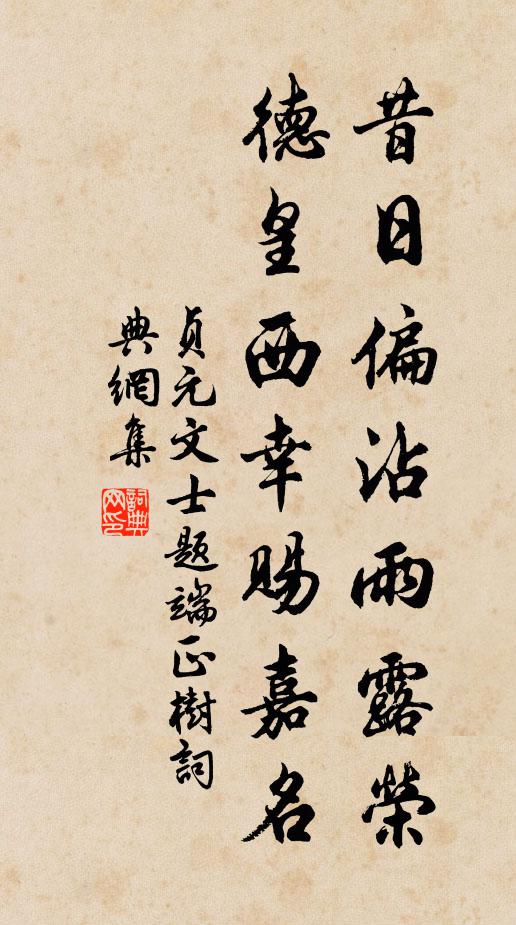 昔日偏沾雨露榮
德皇西幸賜嘉名
貞元文士題端正樹詞
典網集
詞典網印